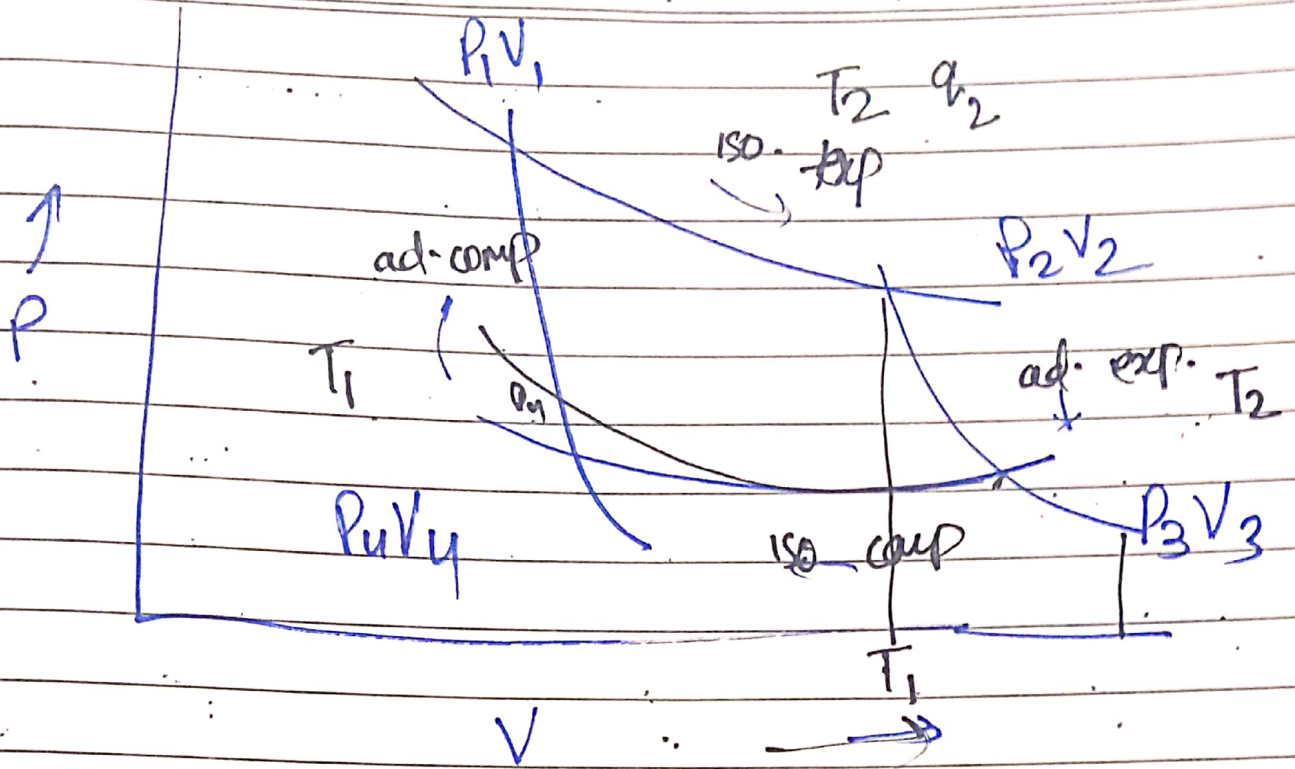 P₁V₁
T₂ q₂
iso. exp
P₂V₂
ad. comp
P
T₁
ad. exp. T₂
P₄V₄
iso comp
P₃V₃
T₁
V